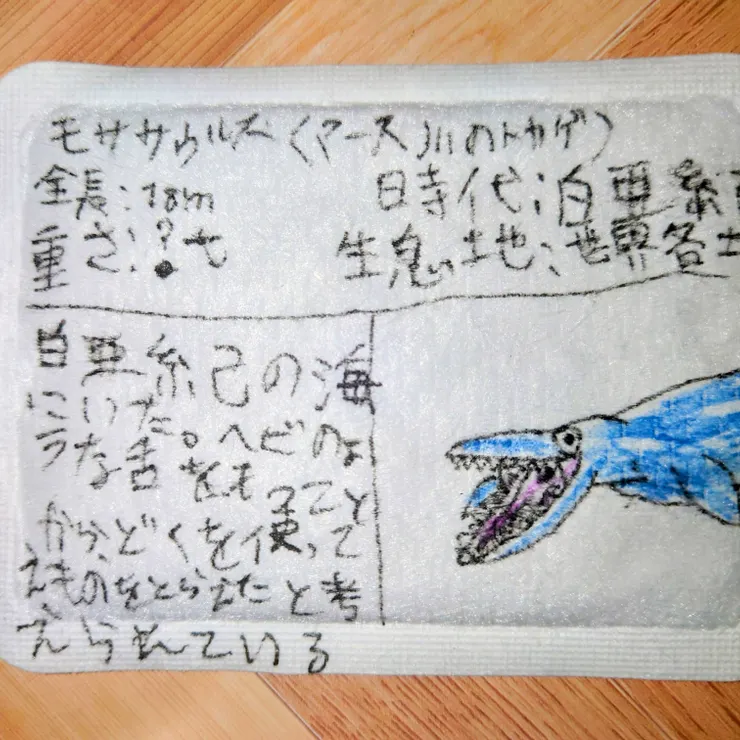 モササウルス(マース川のトカゲ)
全長:18m 時代:白亜紀
重さ:?t 生息地:世界各
白亜紀の海
にいた。ヘビのよ
うな舌をもつこと
から、どくを使って
えものをとらえたと考
えられている